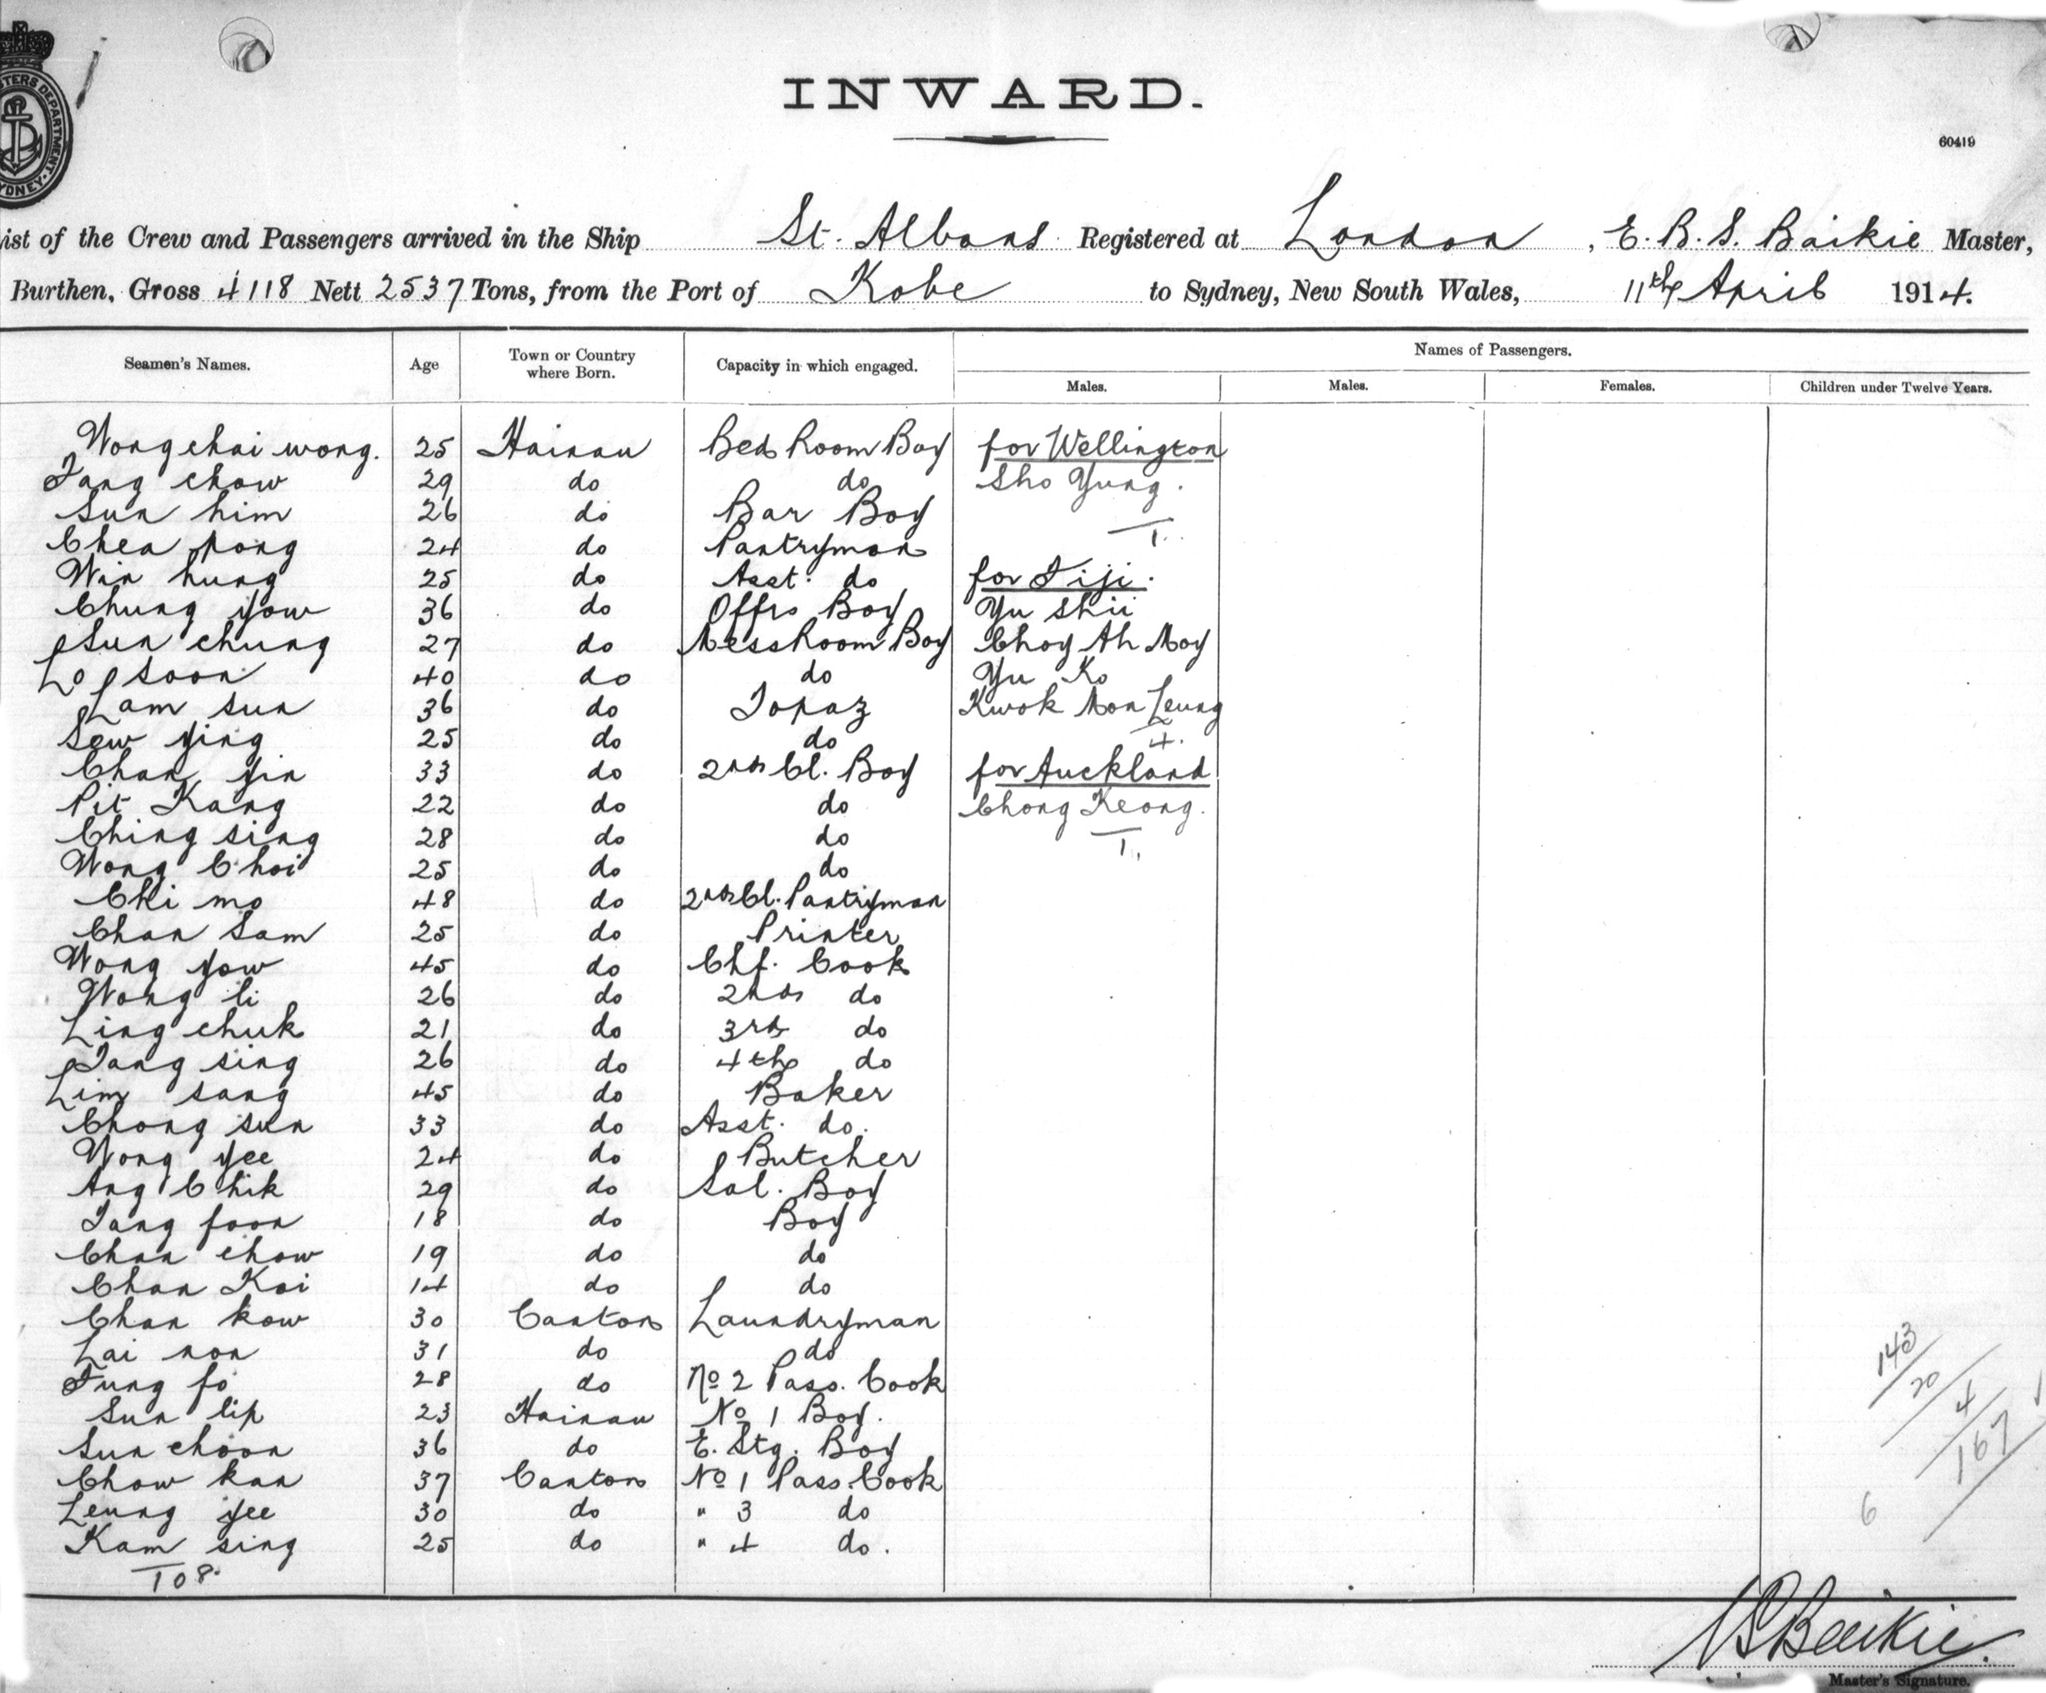 INWARD.
60419
ist of the Crew and Passengers arrived in the Ship St. Albans Registered at London, E. B. S. Baikie Master,
Burthen, Gross 4118 Nett 2537 Tons, from the Port of Kobe to Sydney, New South Wales, 11th April 1914.
Seamen's Names. Age Town or Country where Born. Capacity in which engaged. Names of Passengers.
Males. Males. Females. Children under Twelve Years.
Wong chai wong. 25 Hainan Bed Room Boy for Wellington
Tang chow 29 do do Sho Yung.
Sun him 26 do Bar Boy
Chea pong 24 do Pantryman 1.
Win hung 25 do Asst. do for Fiji.
Chung yow 36 do Offrs Boy Yu Shii
Sun chung 27 do Mess Room Boy Choy Ah Moy
Lo soon 40 do do Yu Ko
Lam sun 36 do Topaz Kwok Mon Leung
Sew ying 25 do do 4.
Chan yin 33 do 2nd Cl. Boy for Auckland
Pit Kang 22 do do Chong Keong.
Ching sing 28 do do 1.
Wong Choi 25 do do
Chi mo 48 do 2nd Cl. Pantryman
Chan Sam 25 do Printer
Wong yow 45 do Chf. Cook
Wong li 26 do 2nd do
Ling chuk 21 do 3rd do
Tang sing 26 do 4th do
Lim sang 45 do Baker
Chong sun 33 do Asst. do.
Wong yee 24 do Butcher
Ang Chik 29 do Sal. Boy
Tang foon 18 do Boy
Chan chow 19 do do
Chan Kai 14 do do
Chan kow 30 Canton Laundryman
Lai non 31 do do
Fung fo 28 do No 2 Pass. Cook
Sun lip 23 Hainan No 1 Boy.
Sun choon 36 do E. Stg. Boy
Chow kan 37 Canton No 1 Pass. Cook
Leung yee 30 do " 3 do
Kam sing 25 do " 4 do.
108.
143
20
4
167
6
Baikie
Master's Signature.